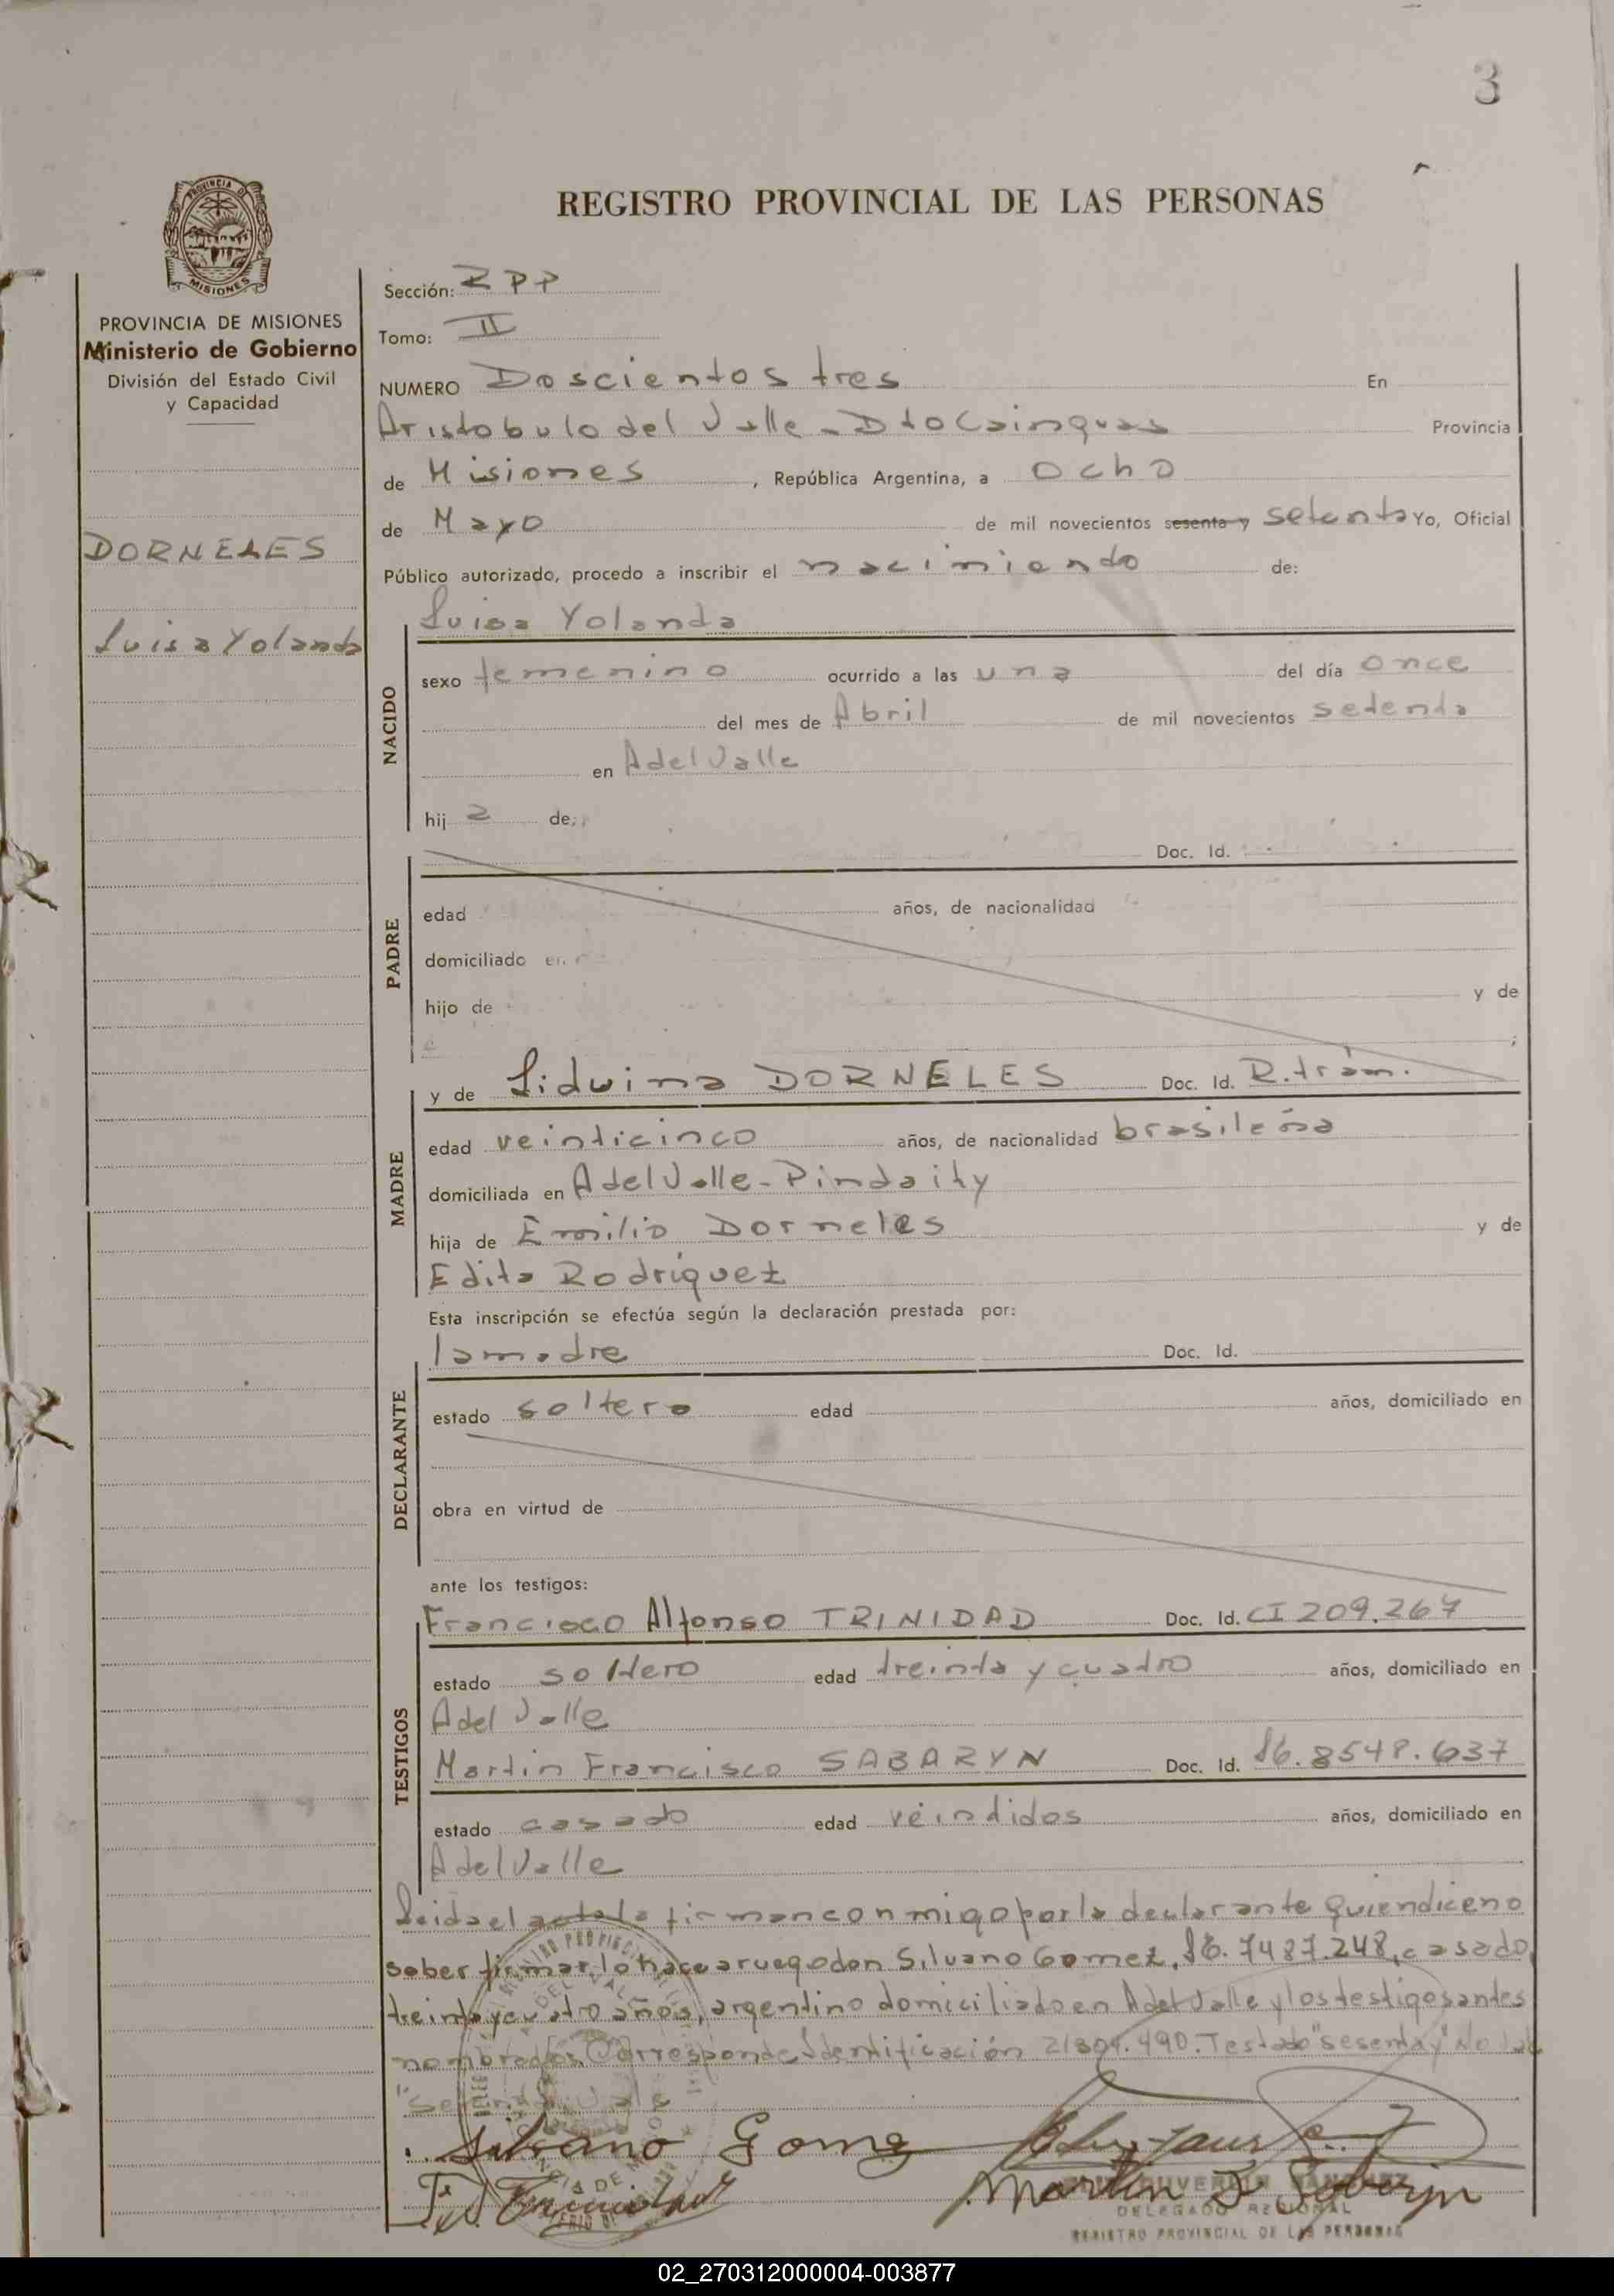 3
REGISTRO PROVINCIAL DE LAS PERSONAS
PROVINCIA DE MISIONES
Ministerio de Gobierno
División del Estado Civil
y Capacidad
DORNELES
Luisa Yolanda
Sección: RPP
Tomo: II
NUMERO Doscientos tres En
Aristobulo del Valle - Dto Cainguas Provincia
de Misiones, República Argentina, a ocho
de Mayo de mil novecientos sesenta y setenta Yo, Oficial
Público autorizado, procedo a inscribir el nacimiento de:
NACIDO
Luisa Yolanda
sexo femenino ocurrido a las una del día once
del mes de Abril de mil novecientos setenta
en A del Valle
hij a de:
PADRE
Doc. Id.
edad años, de nacionalidad
domiciliado en
hijo de y de
MADRE
y de Liduina DORNELES Doc. Id. R. trám.
edad veinticinco años, de nacionalidad brasileña
domiciliada en A del Valle - Pindaity
hija de Emilio Dorneles y de
Edita Rodriguez
Esta inscripción se efectúa según la declaración prestada por:
DECLARANTE
la madre Doc. Id.
estado soltera edad años, domiciliado en
obra en virtud de
ante los testigos:
TESTIGOS
Francisco Alfonso TRINIDAD Doc. Id. CI 209.267
estado soltero edad treinta y cuatro años, domiciliado en
A del Valle
Martin Francisco SABARYN Doc. Id. 8548.637
estado casado edad veintidos años, domiciliado en
A del Valle
Leida el acta la firman conmigo por la declarante quien dice no
saber firmar, lo hace a ruego don Silvano Gomez, 7487.248, casado,
treinta y cuatro años, argentino domiciliado en A del Valle y los testigos antes
nombrados. Corresponde Identificación 21304.490. Testado "sesenta y" No
"Setenta" Vale
Silvano Gomez
Martin F Sabaryn
F. A. Trinidad
DELEGADO REGIONAL
REGISTRO PROVINCIAL DE LAS PERSONAS
02_270312000004-003877